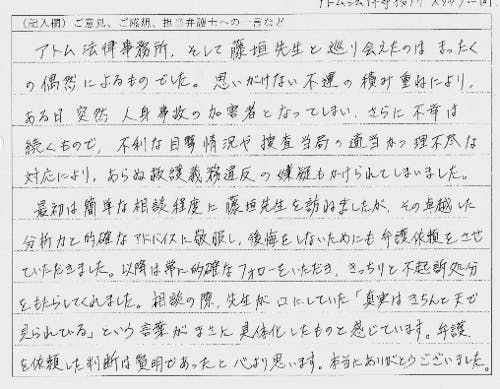 (記入欄)ご意見、ご感想、担当弁護士への一言など
アトム法律事務所、そして藤垣先生と巡り会えたのはまったく
の偶然によるものでした。思いがけない不運の積み重ねにより、
ある日突然人身事故の加害者となってしまい、さらに不幸は
続くもので、不利な目撃情況や捜査当局の適当かつ理不尽な
対応により、あらぬ救護義務違反の嫌疑もかけられてしまいました。
最初は簡単な相談程度に藤垣先生を訪ねましたが、その卓越した
分析力と的確なアドバイスに敬服し、後悔をしないためにも弁護依頼をさせ
ていただきました。以降は常に的確なフォローをいただき、きっちりと不起訴処分
をもたらしてくれました。相談の際、先生が口にしていた「真実はきちんと天で
見られている」という言葉がまさに具体化したものと感じています。弁護
を依頼した判断は賢明であったと心より思います。本当にありがとうございました。